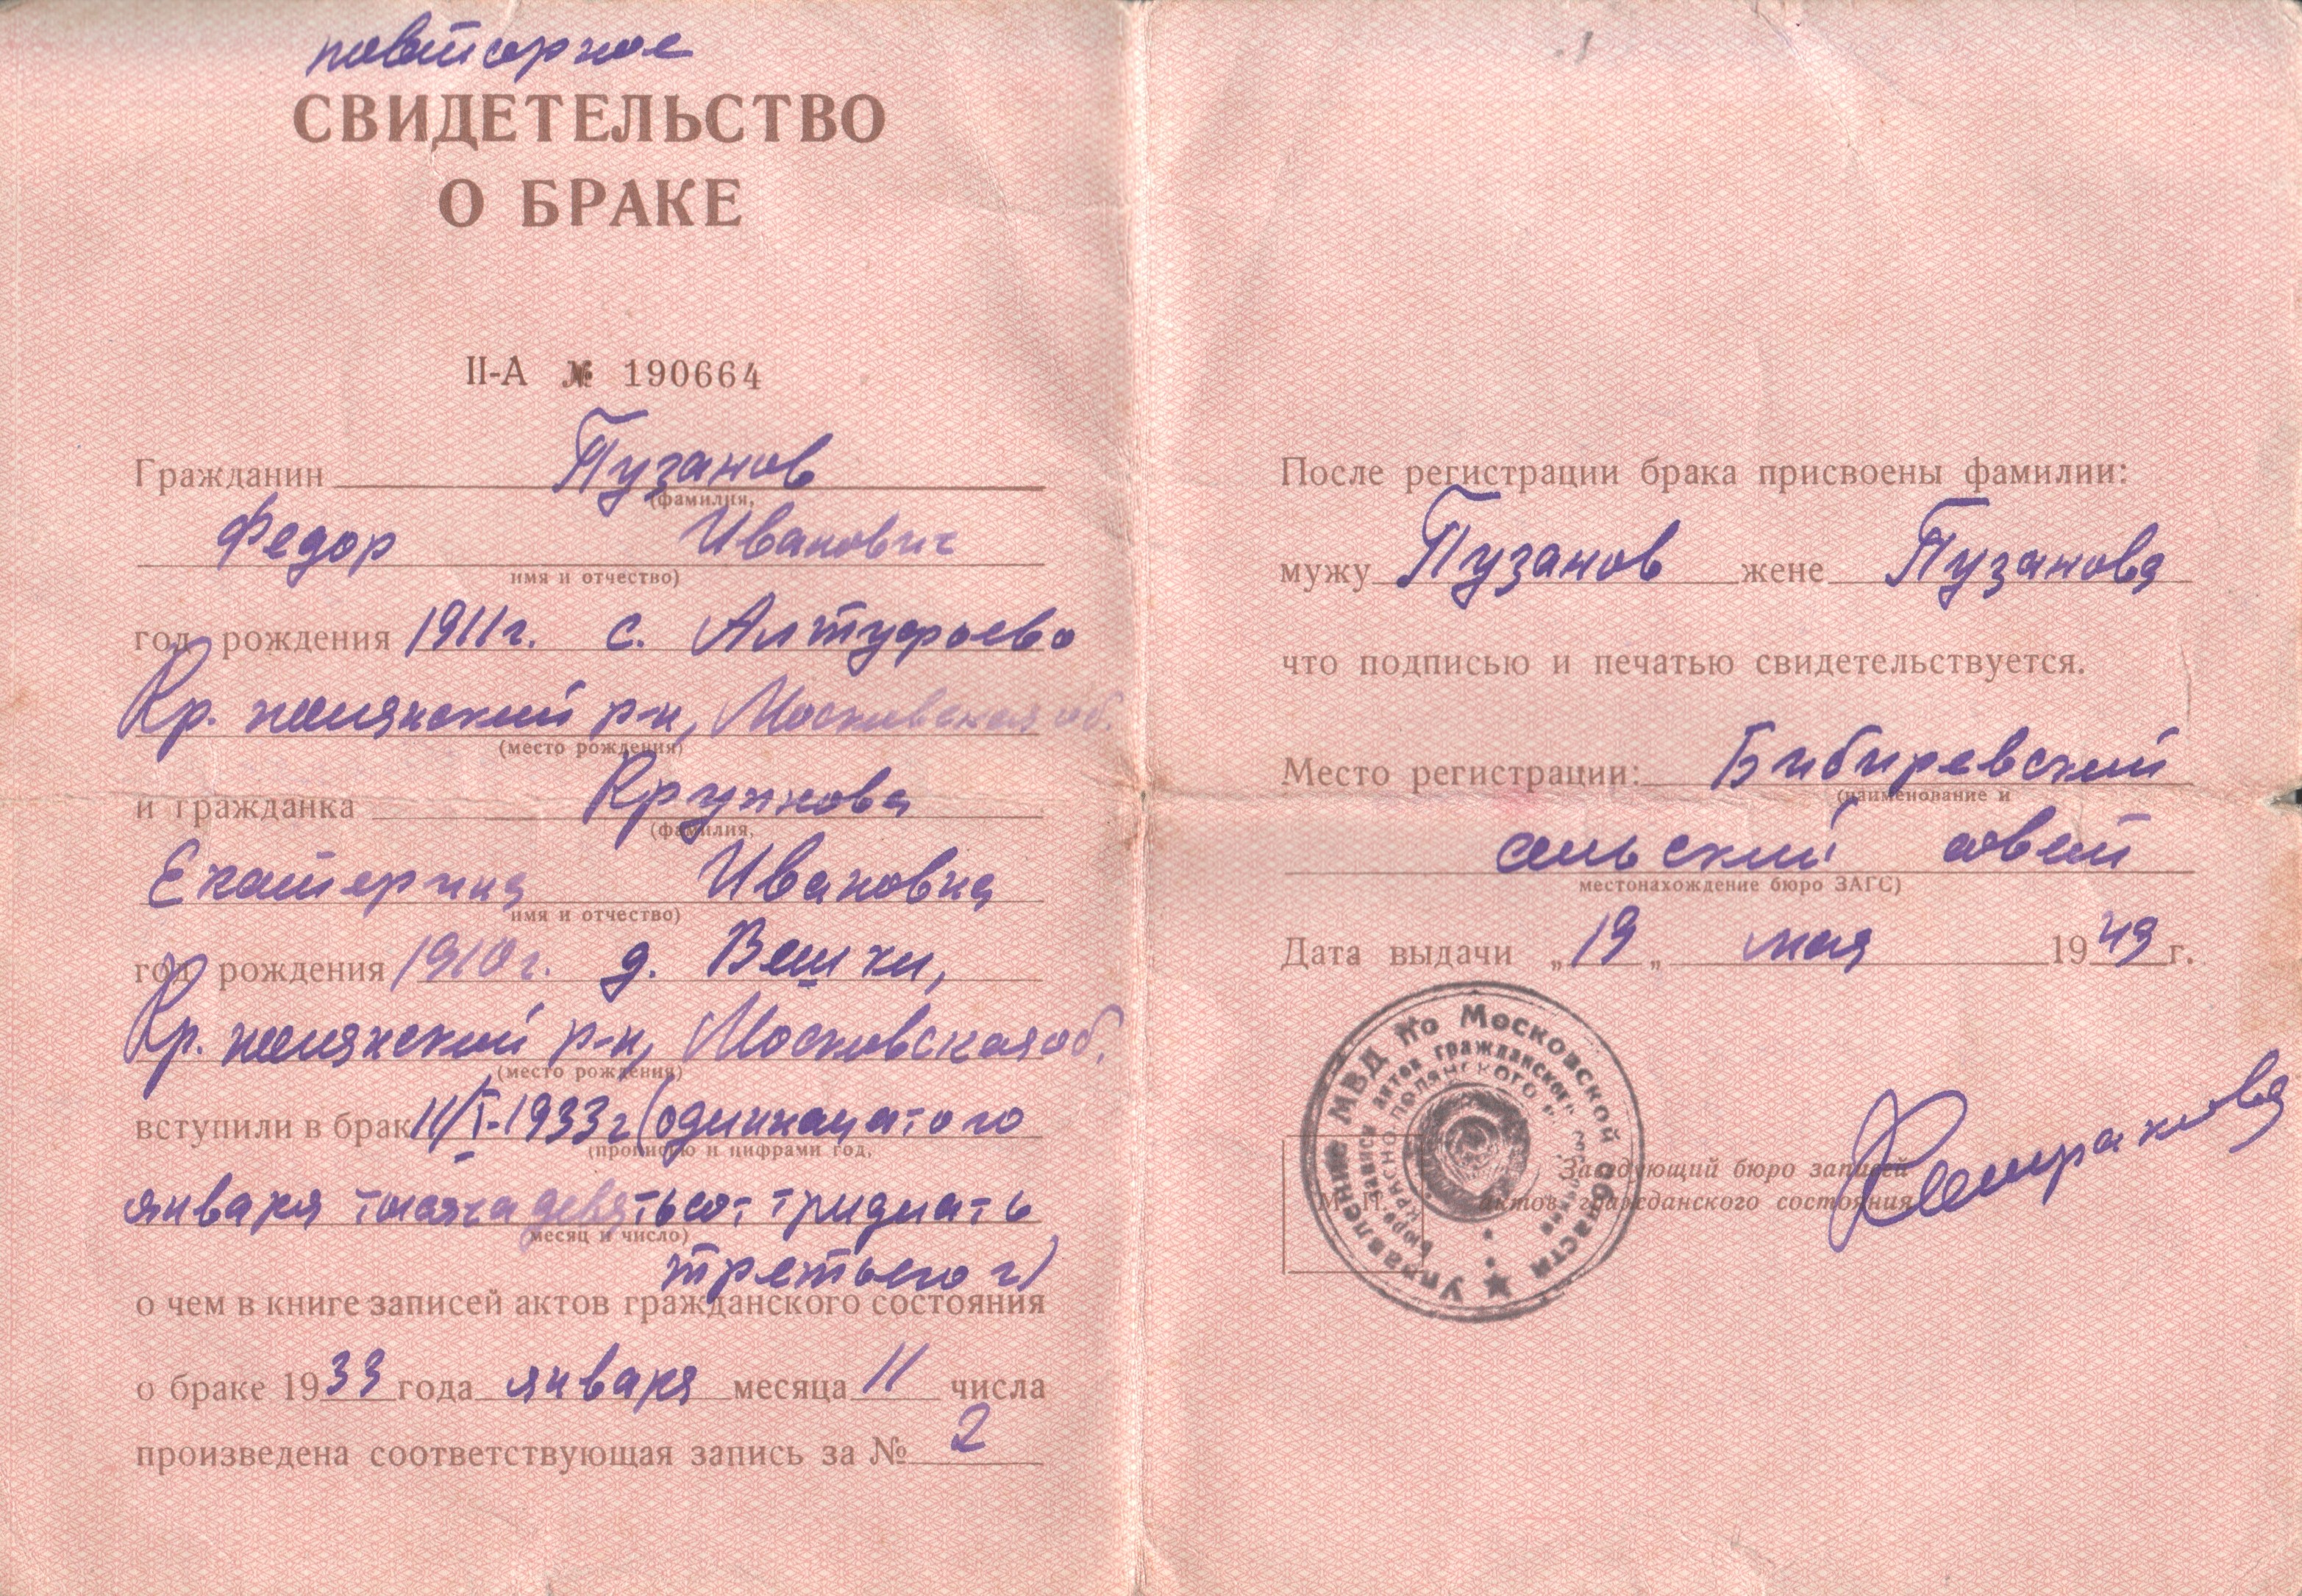 повторное
СВИДЕТЕЛЬСТВО
О БРАКЕ
II-А № 190664
Гражданин Пузанов
(фамилия,
Федор Иванович
имя и отчество)
год рождения 1911г. с. Алтуфьево
Кр. полянский р-н, Московская об.
(место рождения)
и гражданка Крупнова
(фамилия,
Екатерина Ивановна
имя и отчество)
год рождения 1910г. д. Вешки,
Кр. полянский р-н, Московская об.
(место рождения)
вступили в брак 11/I-1933г (одиннацатого
(прописью и цифрами год,
января тысяча девятьсот тридцать
месяц и число)
третьего г)
о чем в книге записей актов гражданского состояния
о браке 1933 года января месяца 11 числа
произведена соответствующая запись за № 2
После регистрации брака присвоены фамилии:
мужу Пузанов жене Пузанова
что подписью и печатью свидетельствуется.
Место регистрации: Бибиревский
(наименование и
сельский совет
местонахождение бюро ЗАГС)
Дата выдачи „19„ мая 1949 г.
Управление МВД по Московской области
Бюро записи актов гражданского
Красно-Полянского
М. П.
Заведующий бюро записей
актов гражданского состояния